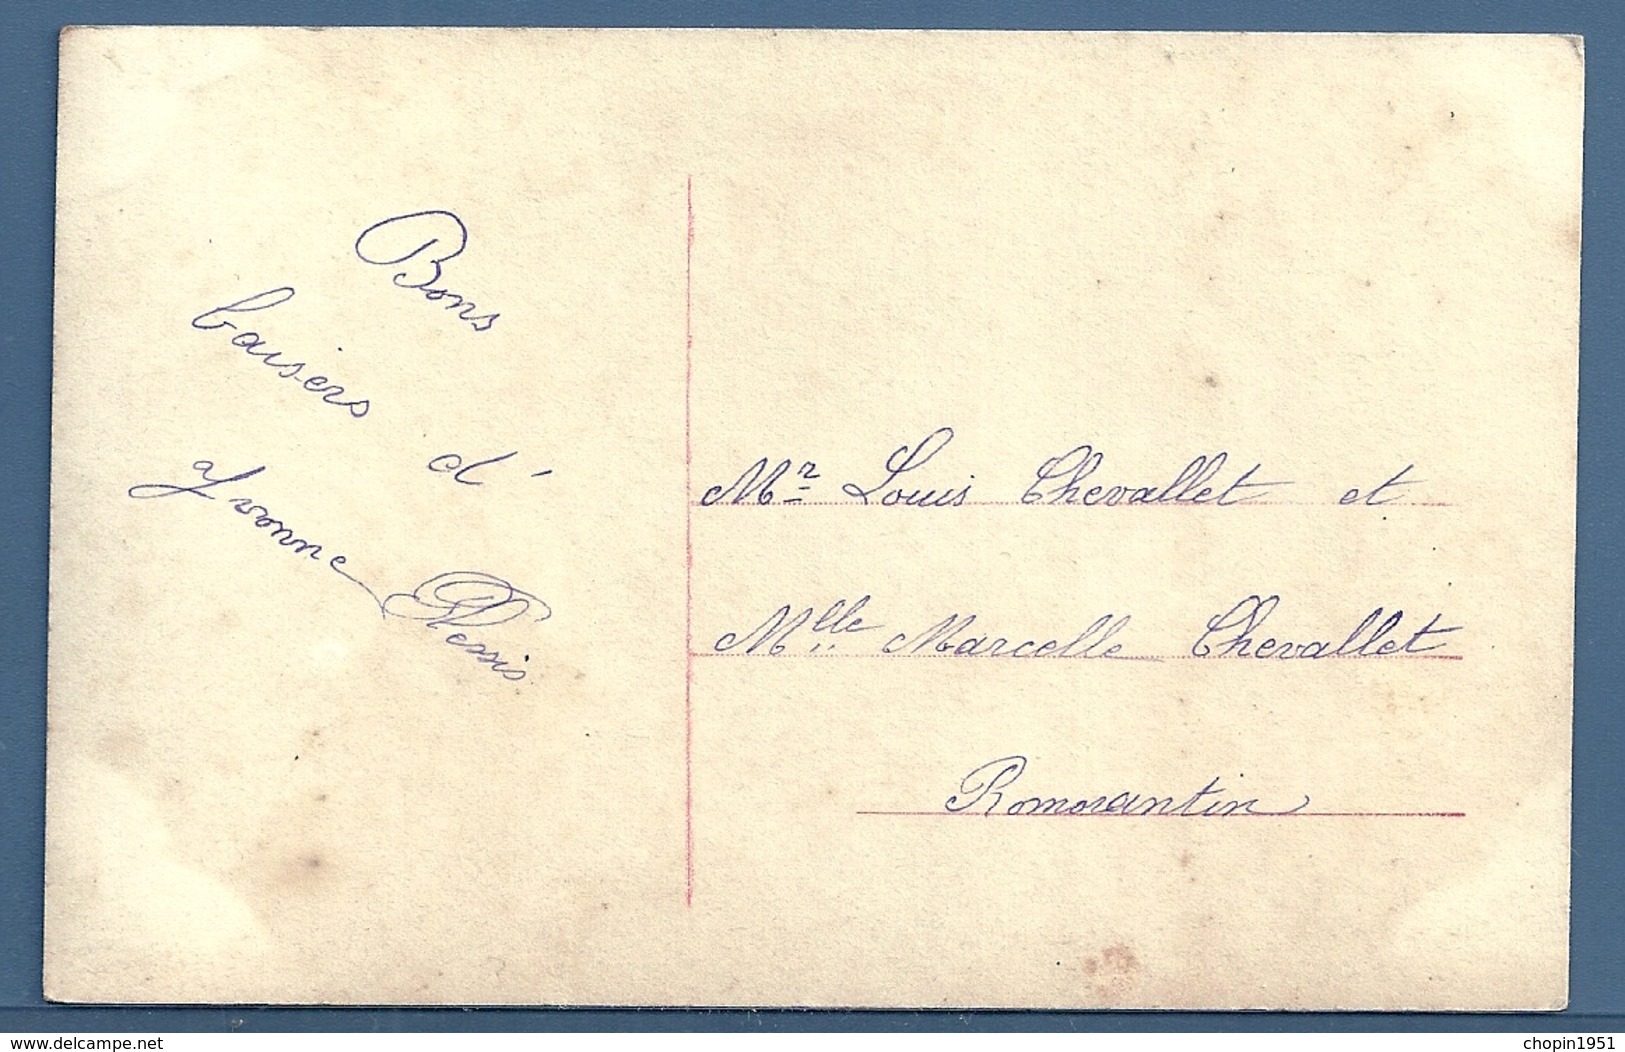 Bons
baisers d'
Yvonne Plessis
Mr Louis Chevallet et
Mlle Marcelle Chevallet
Romorantin
delcampe.net
chopin1951